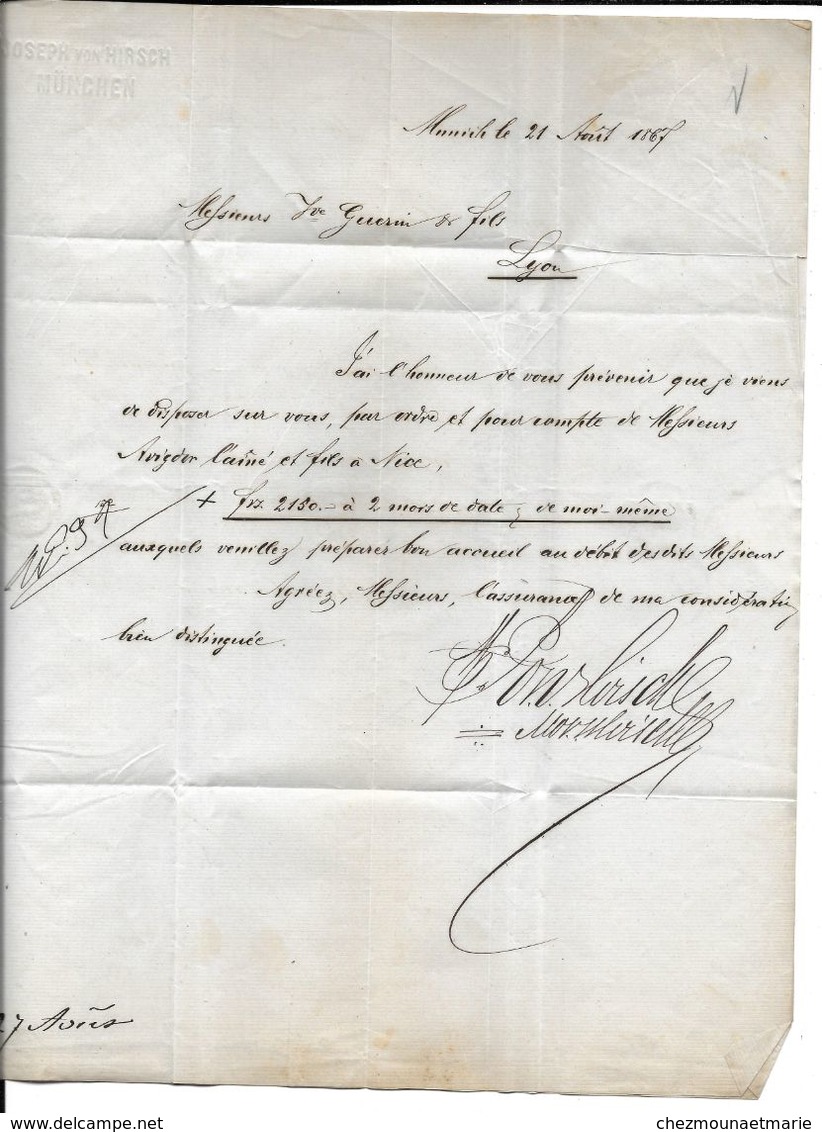 JOSEPH VON HIRSCH
MÜNCHEN
Munich le 21 Août 1867
Messieurs Vve Guerin & fils
Lyon
J'ai l'honneur de vous prévenir que je viens
de disposer sur vous, par ordre et pour compte de Messieurs
Avigdor l'aîné et fils a Nice,
+ frs. 2150.- à 2 mois de date, de moi-même
auxquels veuillez préparer bon accueil au débit desdits Messieurs
Agréez, Messieurs, l'assurance de ma considération
bien distinguée.
von Hirsch
27 Août
chezmounaetmarie